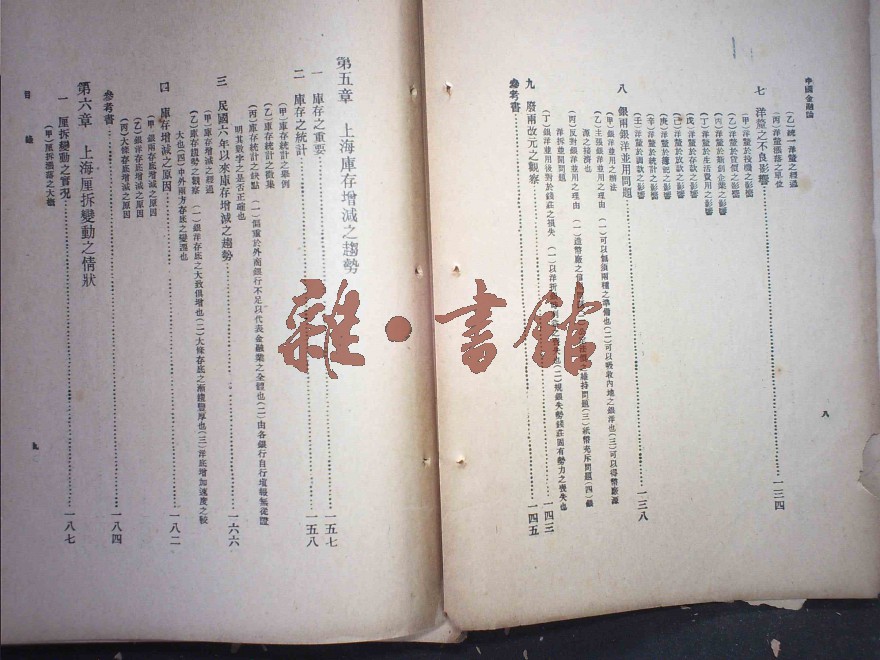 中國金融論
(乙)統一洋釐之經過
(丙)洋釐漲落之單位
七 洋釐之不良影響……一三四
(甲)洋釐於投機之影響
(乙)洋釐於貨價之影響
(丙)洋釐於新創企業之影響
(丁)洋釐於生活費用之影響
(戊)洋釐於存款之影響
(己)洋釐於放款之影響
(庚)洋釐於簿記之影響
(辛)洋釐於統計之影響
(壬)洋釐於調款之影響
八 銀兩銀洋並用問題……一三八
(甲)銀洋並用之辦法
(乙)主張銀洋並用之理由 (一)可以無須兩種之準備也(二)可以吸收內地之銀洋也(三)可以得幣廠源
源之接濟也
(丙)反對銀洋並用之理由 (一)造幣廠之信
維持問題(三)紙幣充斥問題(四)銀
洋拆並開問題
(丁)銀洋並用後對於錢莊之損失 (一)以洋折
(二)規銀失勢錢莊固有勢力之喪失也
九 廢兩改元之觀察……一四三
參考書……一四五
八
第五章 上海庫存增減之趨勢
一 庫存之重要……一五七
二 庫存之統計……一五八
(甲)庫存統計之舉例
(乙)庫存統計之徵集
(丙)庫存統計之缺點 (一)偏重於外商銀行不足以代表金融業之全體也(二)由各銀行自行填報無從證
明其數字之是否正確也
三 民國六年以來庫存增減之趨勢……一六六
(甲)庫存增減之經過
(乙)庫存趨勢之觀察 (一)銀洋存底之大致俱增也(二)大條存底之漸趨豐厚也(三)洋底增加速度之較
大也(四)中外兩方存底之變遷也
四 庫存增減之原因……一八二
(甲)銀兩存底增減之原因
(乙)銀洋存底增減之原因
(丙)大條存底增減之原因
參考書……一八四
第六章 上海厘拆變動之情狀
一 厘拆變動之實況……一八七
(甲)厘拆漲落之大概
目 錄
九
雜·書館